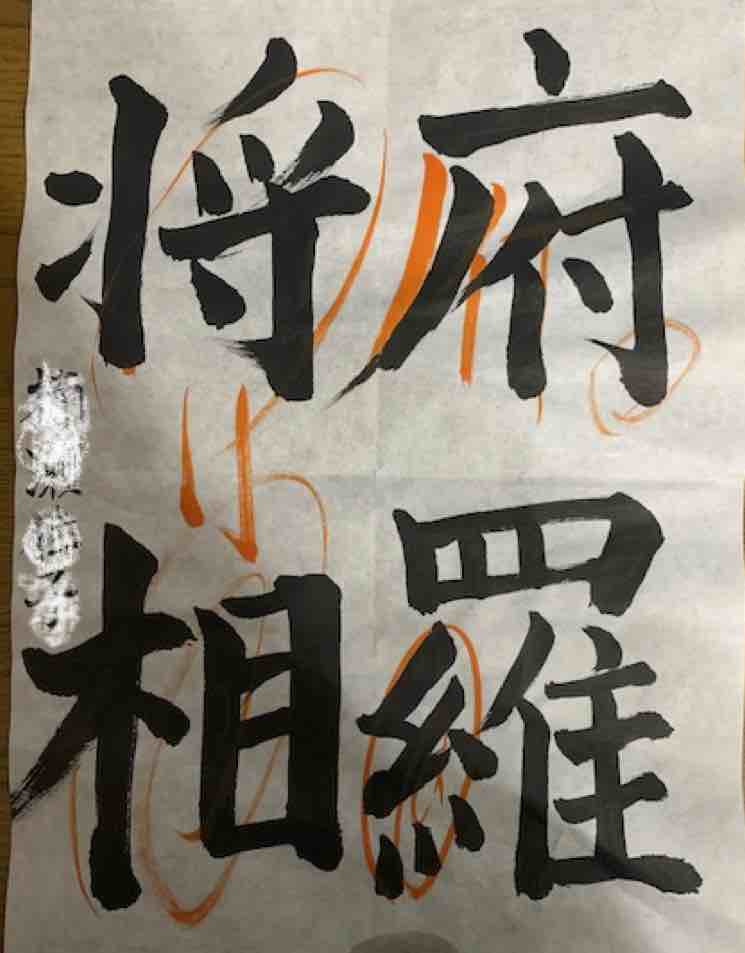 府羅
将相